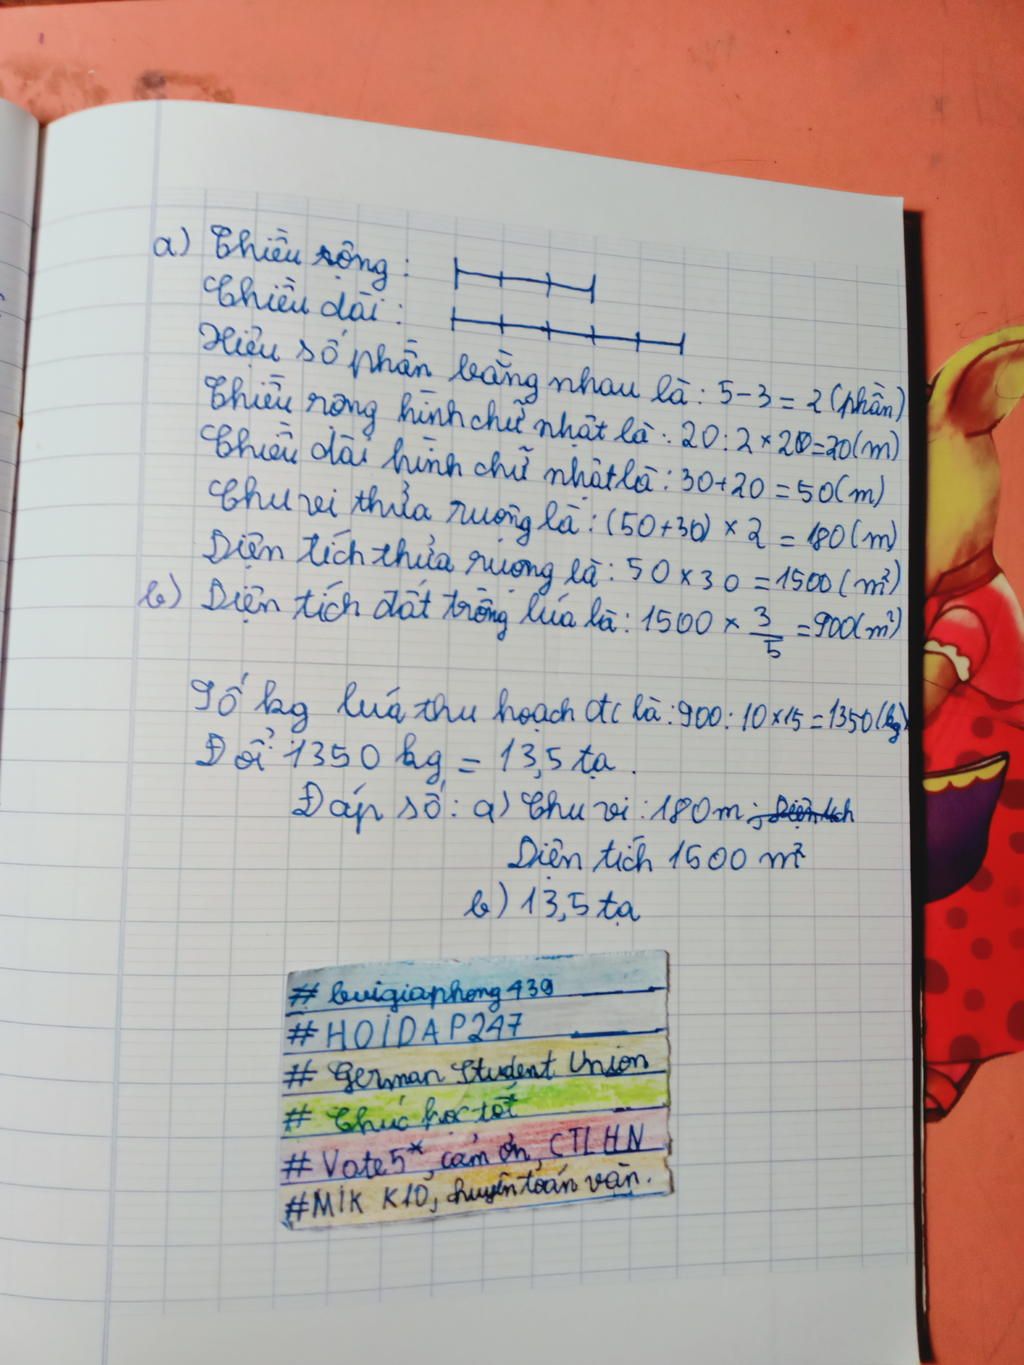 a) Chiều rộng :
Chiều dài :
Hiệu số phần bằng nhau là : 5 - 3 = 2 (phần)
Chiều rộng hình chữ nhật là : 20 : 2 × 20 = 20 (m)
Chiều dài hình chữ nhật là : 30 + 20 = 50 (m)
Chu vi thửa ruộng là : (50 + 30) × 2 = 180 (m)
Diện tích thửa ruộng là : 50 × 30 = 1500 (m²)
b) Diện tích đất trồng lúa là : 1500 × 3/5 = 900 (m²)
Số kg lúa thu hoạch đc là : 900 : 10 × 15 = 1350 (kg)
Đổi 1350 kg = 13,5 tạ.
Đáp số : a) Chu vi : 180 m ; Diện tích
Diện tích 1500 m²
b) 13,5 tạ
# buigiaphong439
# HOIDAP247
# German Student Union
# Chúc học tốt
# Vote 5*, cảm ơn, CTLHN
# MIK K10, chuyên toán văn.